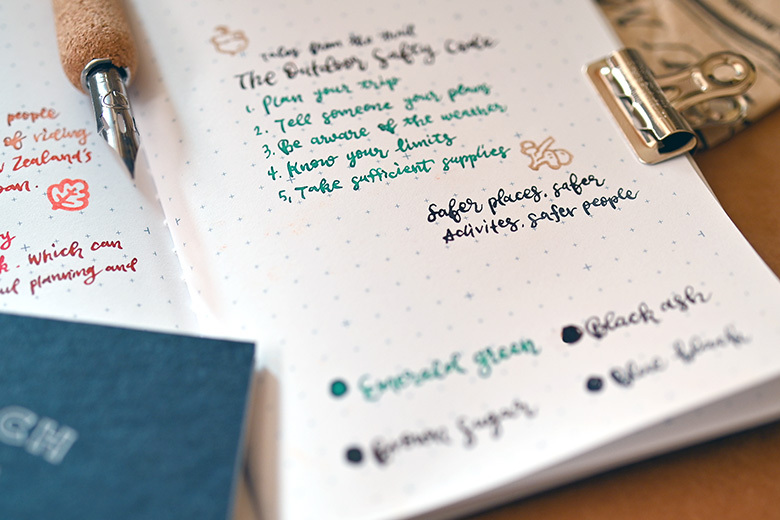 people
of viding
Zealand's
which can
planning and
rules from the trail
The Outdoor Safty Code
1. Plan your trip
2. Tell someone your plans
3. Be aware of the weather
4. Know your limits
5. Take sufficient supplies
Safer places, safer
Activites, safer people
Black ash
Emerald green
Blue black
Brown sugar
CH